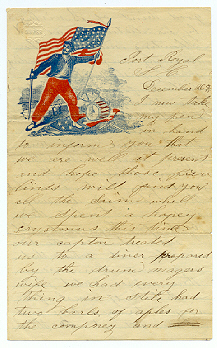 Port Royal
December 18
I now take
my pen
in hand
to inform you that
we are well at present
and hope those few
lines will find you
all the same
we spent a
cristmas this time
our captin treated
us to a diner prepared
by the drum magers
wife we had every
thing in
two barls of aples for
the compney and